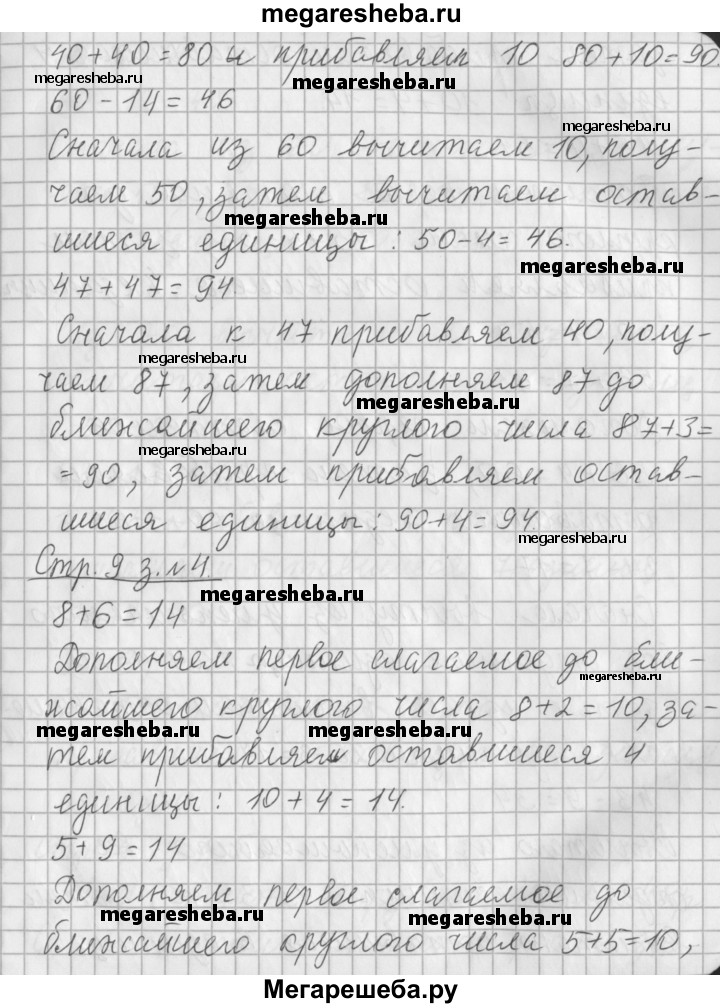 megaresheba.ru
40+40=80 и прибавляем 10 80+10=90
megaresheba.ru
megaresheba.ru
60-14=46
megaresheba.ru
Сначала из 60 вычитаем 10, полу-
чаем 50, затем вычитаем остав-
megaresheba.ru
шиеся единицы: 50-4=46.
megaresheba.ru
47+47=94.
Сначала к 47 прибавляем 40, полу-
megaresheba.ru
чаем 87, затем дополняем 87 до
megaresheba.ru
ближайшего круглого числа 87+3=
=90, затем прибавляем остав-
шиеся единицы: 90+4=94.
megaresheba.ru
Стр. 9 з. №4.
megaresheba.ru
8+6=14
Дополняем первое слагаемое до бли-
megaresheba.ru
жайшего круглого числа 8+2=10, за-
megaresheba.ru
megaresheba.ru
тем прибавляем оставшиеся 4
единицы: 10+4=14.
5+9=14
Дополняем первое слагаемое до
megaresheba.ru
megaresheba.ru
ближайшего круглого числа 5+5=10,
Мегарешеба.ру